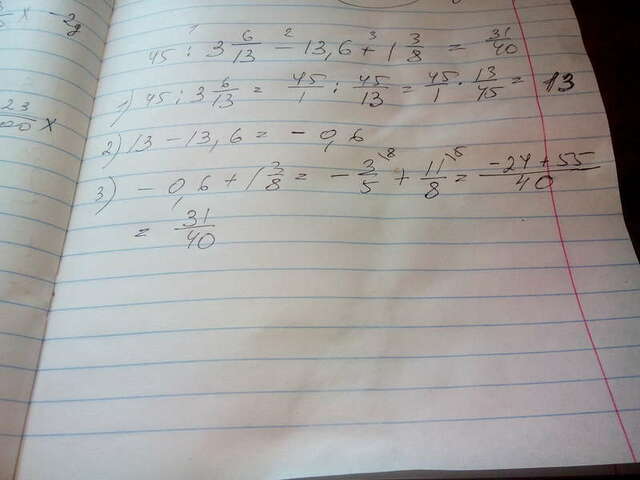 x -2y
23
x
1 2 3
45 : 3 6/13 - 13,6 + 1 3/8 = 31/40
1) 45 : 3 6/13 = 45/1 : 45/13 = 45/1 · 13/45 = 13
2) 13 - 13,6 = - 0,6
3) - 0,6 + 1 3/8 = - 3/5 \8 + 11/8 \5 = -24 + 55/40
= 31/40